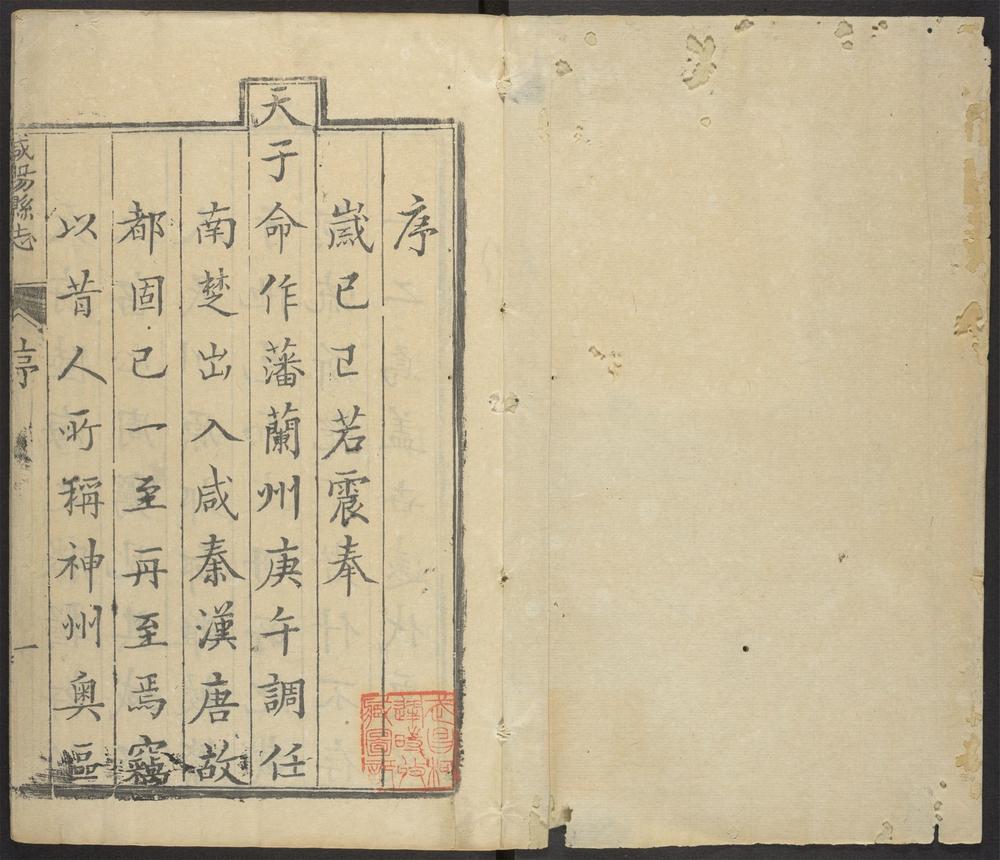 序
歲己巳若震奉
天子命作藩蘭州庚午調任
南楚出入咸秦漢唐故
都固已一至再至焉竊
以昔人所稱神州奥區
咸陽縣志
序
一